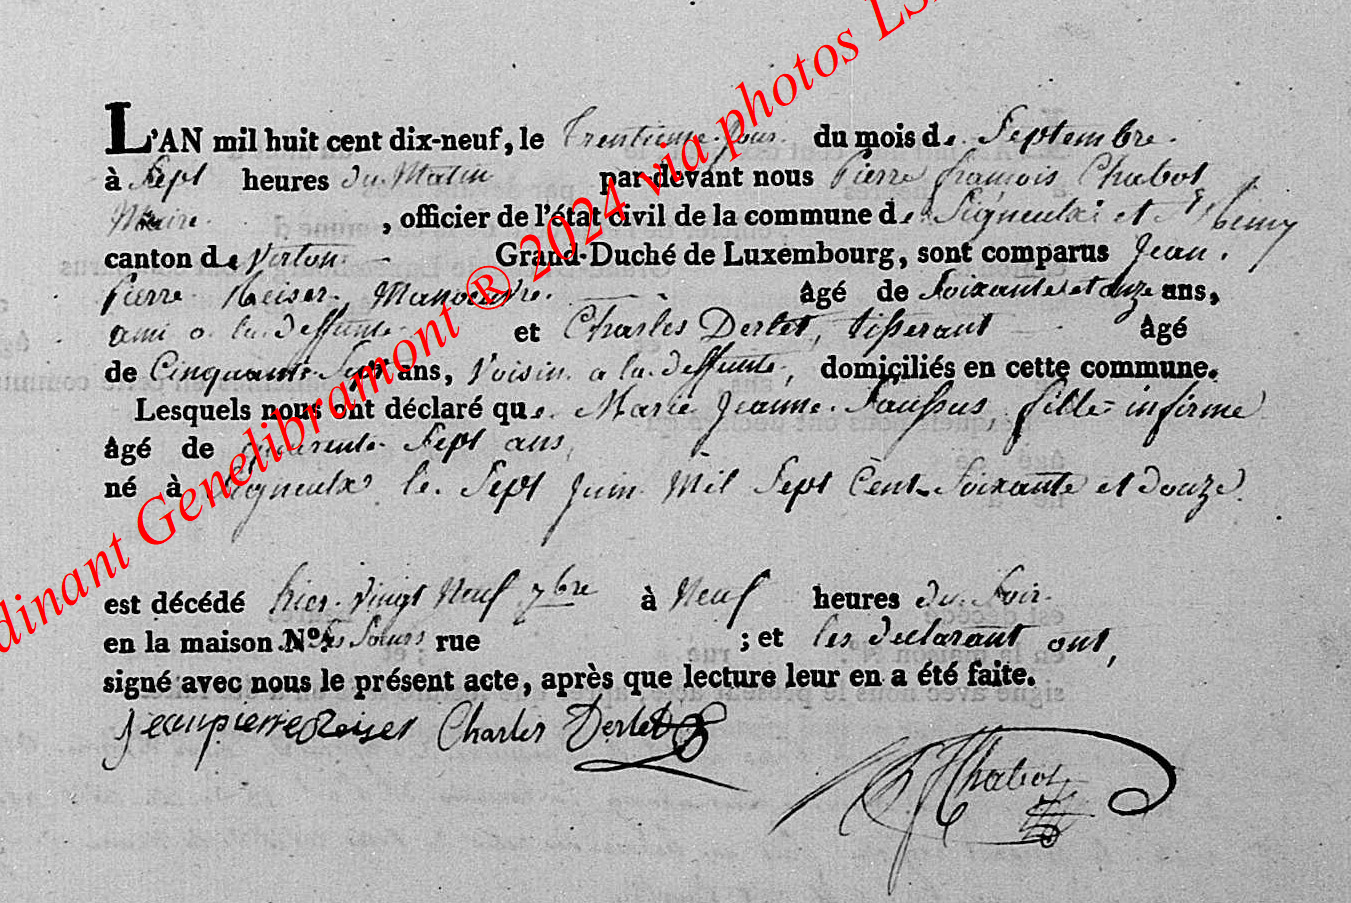 L'AN mil huit cent dix-neuf, le Trentieme Jour du mois de Septembre
à Sept heures du Matin par-devant nous Pierre francois Chabot
Maire , officier de l'état civil de la commune de Signeulx et St Remy
canton de Virton Grand-Duché de Luxembourg, sont comparus Jean
Pierre Reiser, Manoeuvre. âgé de Soixante et onze ans,
ami a la deffunte et Charles Derlet, tisserant âgé
de Cinquante Sept ans, Voisin a la deffunte, domiciliés en cette commune.
Lesquels nous ont déclaré que Marie Jeanne fille infirme
âgé de quarente Sept ans,
né à Signeulx le Sept Juin Mil Sept Cent Soixante et douze
est décédé hier vingt Neuf 7bre à Neuf heures du Soir
en la maison N° Ses Soeurs rue ; et les declarant ont,
signé avec nous le présent acte, après que lecture leur en a été faite.
Jean pierre Reiser Charles Derlet
Chabot
dinant Genelibramont ® 2024 via photos LS